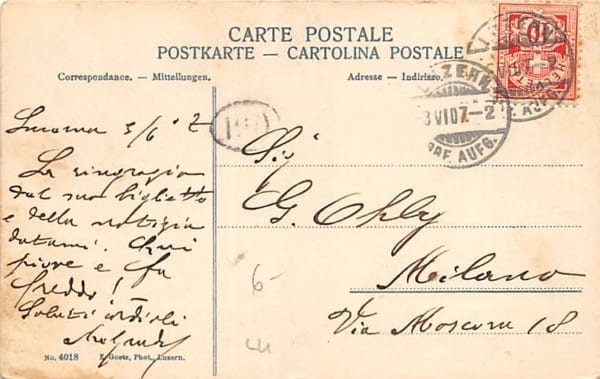 CARTE POSTALE
POSTKARTE — CARTOLINA POSTALE
Correspondance. — Mitteilungen.
Adresse — Indirizzo.
10
HELVETIA
VI 07.-2
BRF. AUFG.
3/6 7
La ringrazio
del suo biglietto
e della notizia
datami. Qui
piove e fa
freddo!
Saluti cordiali
Sig
G. Ohly
Milano
Via Moscova 18
6
No. 4018 E. Goetz, Phot., Luzern.